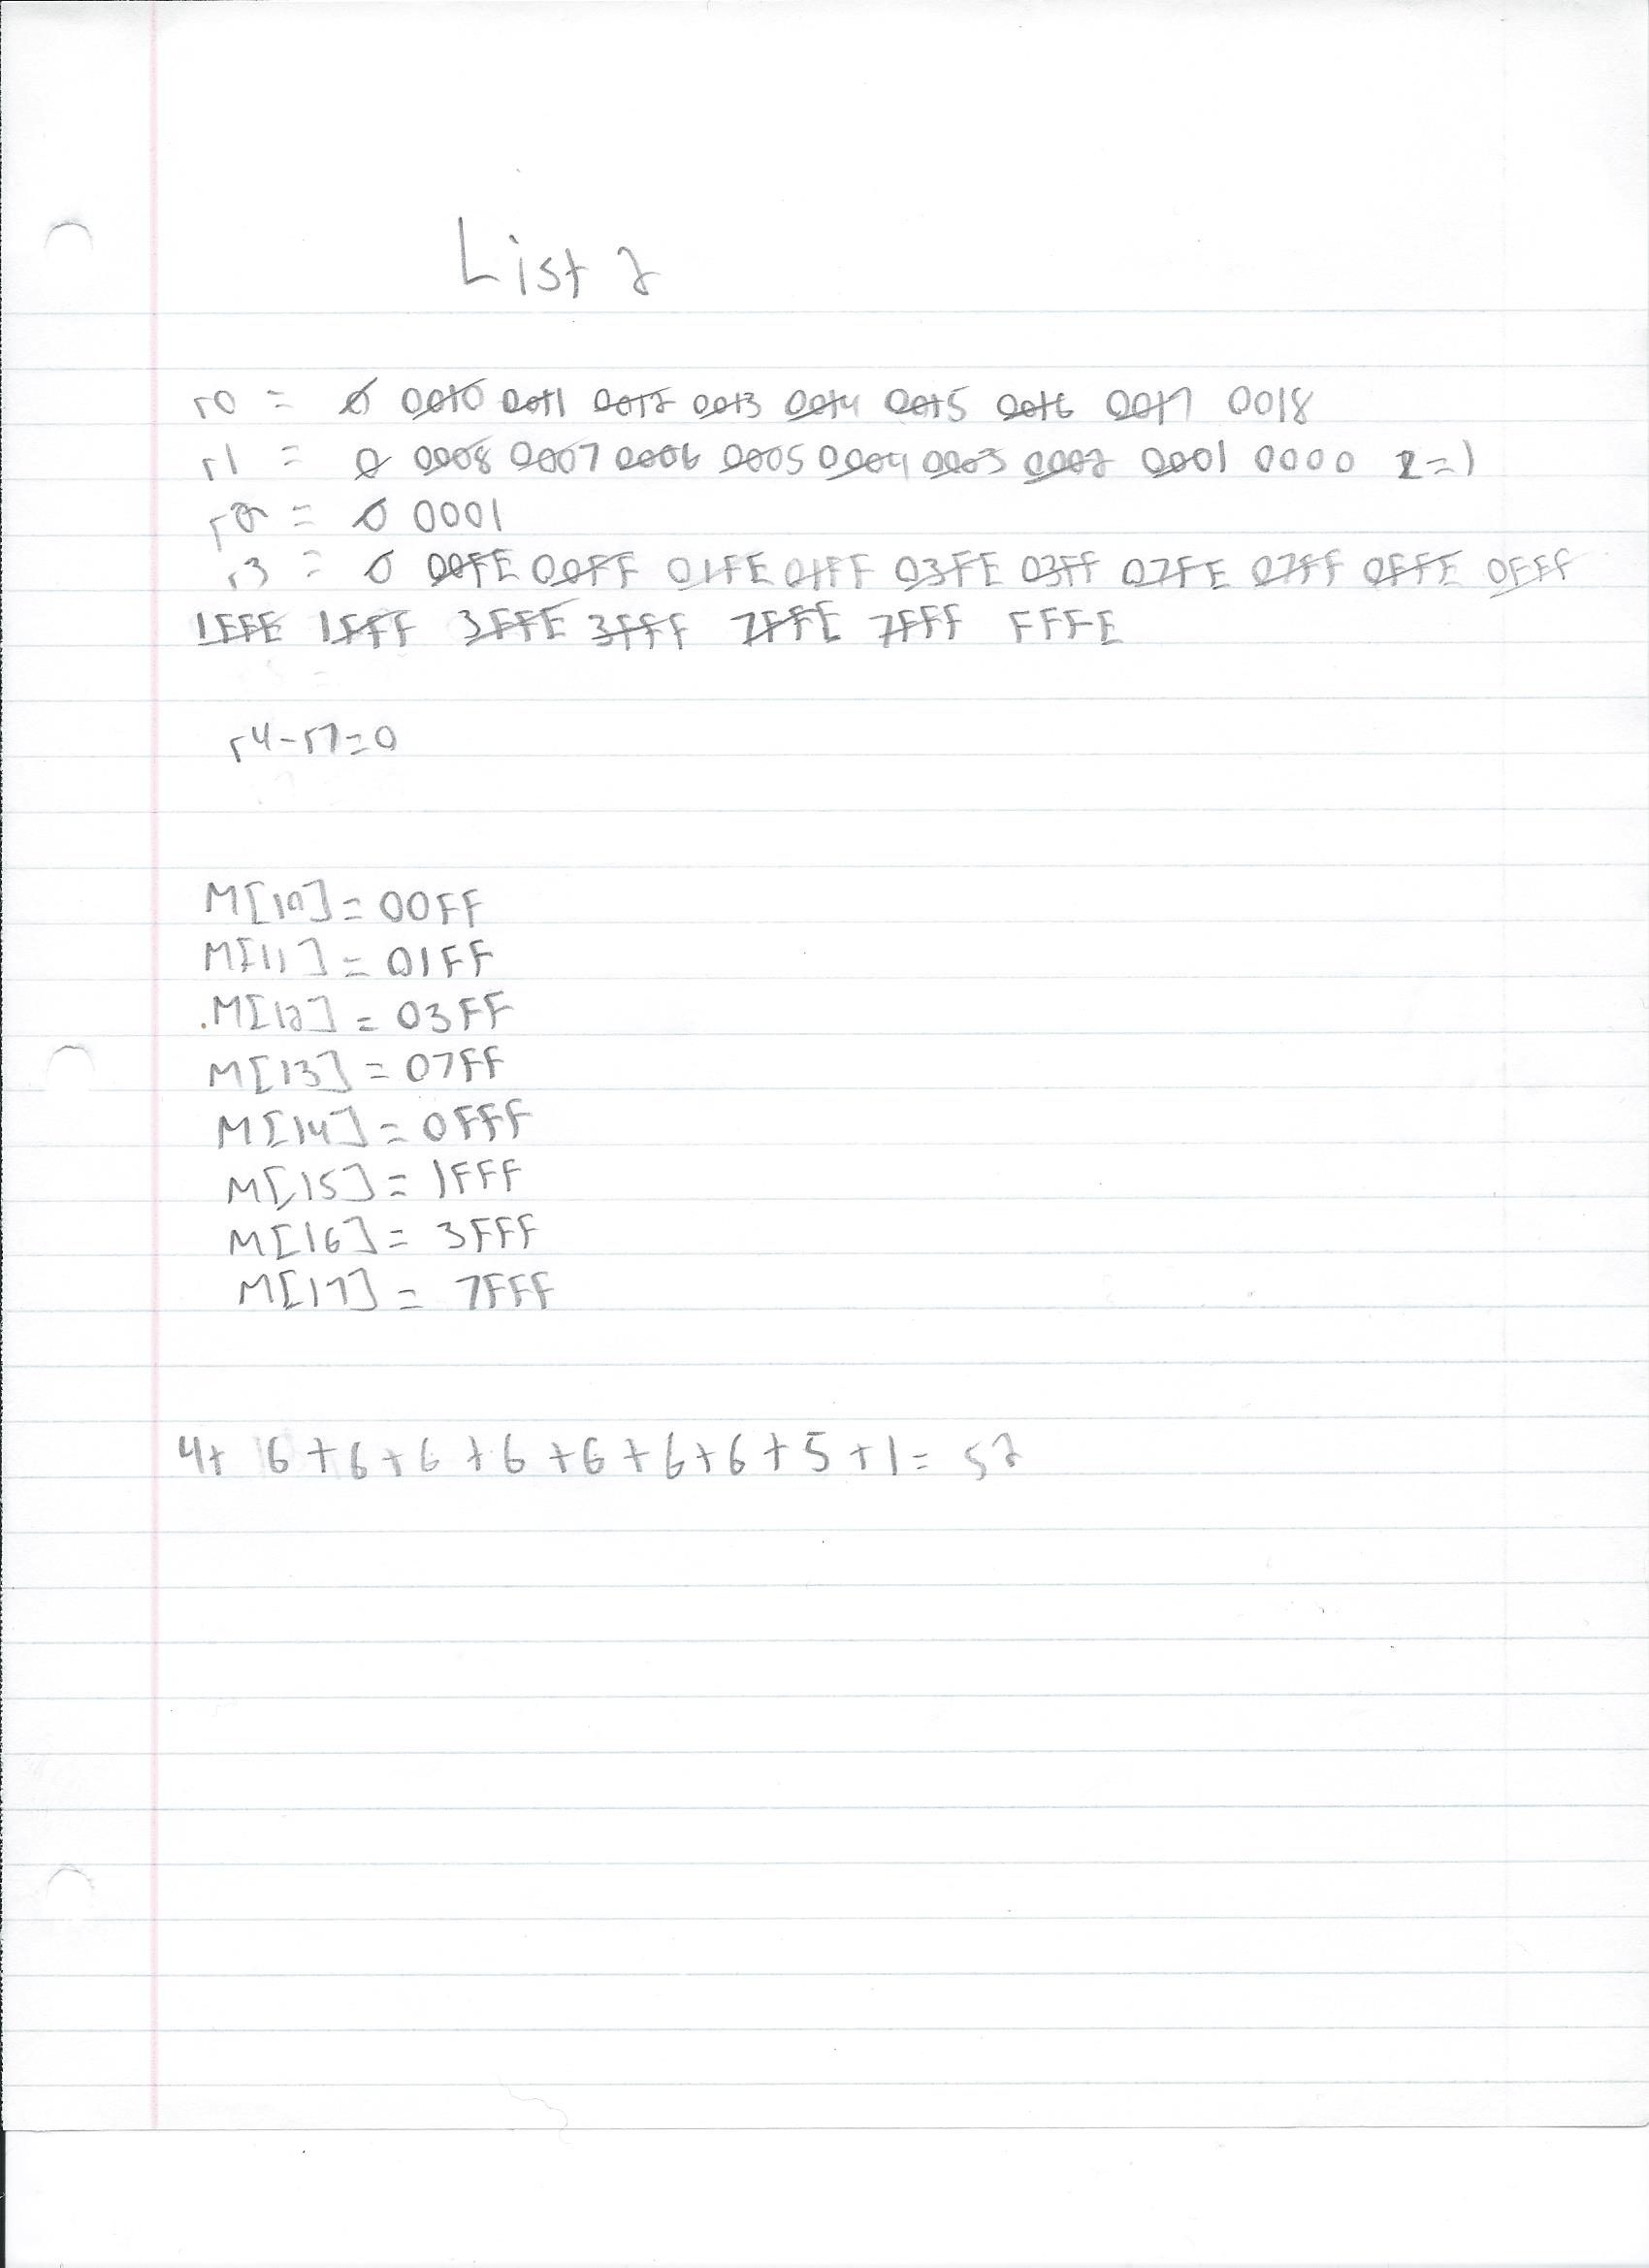 List 2
r0 = 0 0010 0011 0012 0013 0014 0015 0016 0017 0018
r1 = 0 0008 0007 0006 0005 0004 0003 0002 0001 0000 z=1
r2 = 0 0001
r3 = 0 00FE 00FF 01FE 01FF 03FE 03FF 07FE 07FF 0FFE 0FFF
1FFE 1FFF 3FFE 3FFF 7FFE 7FFF FFFE
r4-r7=0
M[10]=00FF
M[11]=01FF
M[12]=03FF
M[13]=07FF
M[14]=0FFF
M[15]=1FFF
M[16]=3FFF
M[17]=7FFF
4+ 6+6+6+6+6+6+6+5+1=52